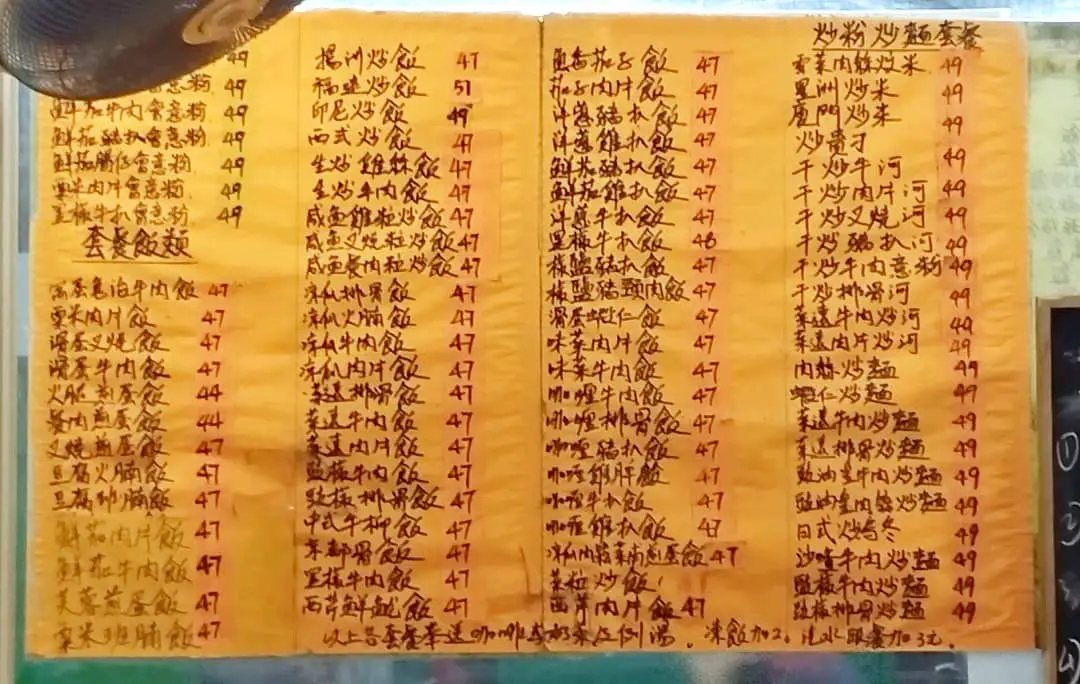 49
會意粉 49
鮮茄牛肉會意粉 49
鮮茄豬扒會意粉 49
鮮茄腸仔會意粉 49
粟米肉片會意粉 49
黑椒牛扒會意粉 49
套餐飯類
窩蛋免治牛肉飯 47
粟米肉片飯 47
滑蛋叉燒飯 47
滑蛋牛肉飯 47
火腿煎蛋飯 44
餐肉煎蛋飯 44
叉燒煎蛋飯 47
豆腐火腩飯 47
豆腐斑腩飯 47
鮮茄肉片飯 47
鮮茄牛肉飯 47
芙蓉煎蛋飯 47
粟米斑腩飯 47
揚洲炒飯 47
福建炒飯 51
印尼炒飯 49
西式炒飯 47
生炒雞粒飯 47
生炒牛肉飯 47
咸魚雞粒炒飯 47
咸魚叉燒粒炒飯 47
咸魚餐肉粒炒飯 47
凉瓜排骨飯 47
凉瓜火腩飯 47
凉瓜牛肉飯 47
凉瓜肉片飯 47
菜遠排骨飯 47
菜遠牛肉飯 47
菜遠肉片飯 47
豉椒牛肉飯 47
豉椒排骨飯 47
中式牛柳飯 47
京都骨飯 47
黑椒牛肉飯 47
西芹鮮魷飯 47
魚香茄子飯 47
茄子肉片飯 47
洋葱豬扒飯 47
洋葱雞扒飯 47
鮮茄豬扒飯 47
鮮茄雞扒飯 47
洋葱牛扒飯 47
黑椒牛扒飯 48
椒鹽豬扒飯 47
椒鹽豬頸肉飯 47
滑蛋蝦仁飯 47
味菜肉片飯 47
味菜牛肉飯 47
咖喱牛肉飯 47
咖喱排骨飯 47
咖喱豬扒飯 47
咖喱雞胖飯 47
咖喱牛扒飯 47
咖喱雞扒飯 47
凉瓜肉鬆菜甫煎蛋飯 47
菜粒炒飯
西芹肉片飯 47
炒粉炒麵套餐
雪菜肉絲炆米 49
星洲炒米 49
廈門炒米 49
炒貴刁
干炒牛河 49
干炒肉片河 49
干炒叉燒河 49
干炒豬扒河 49
干炒牛肉意粉 49
干炒排骨河 49
菜遠牛肉炒河 49
菜遠肉片炒河 49
肉絲炒麵 49
蝦仁炒麵 49
菜遠牛肉炒麵 49
菜遠排骨炒麵 49
豉油皇牛肉炒麵 49
豉油皇肉絲炒麵 49
日式炒烏冬 49
沙嗲牛肉炒麵 49
豉椒牛肉炒麵 49
豉椒排骨炒麵 49
以上各套餐奉送咖啡或奶茶或例湯。凍飲加2。汽水跟餐加3元。
①
②
3
④